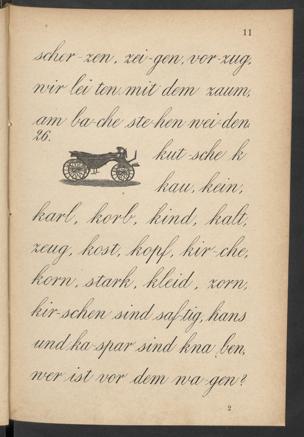 11
scher-zen, zei-gen, vor-zug,
wir lei ten mit dem zaum,
am ba-che ste-hen wei-den.
26.
kut-sche k
kau, kein,
karl, korb, kind, kalt,
zeug, kost, kopf, kir-che,
korn, stark, kleid, zorn,
kir-schen sind saf-tig, hans
und ka-spar sind kna ben,
wer ist vor dem wa-gen?
2